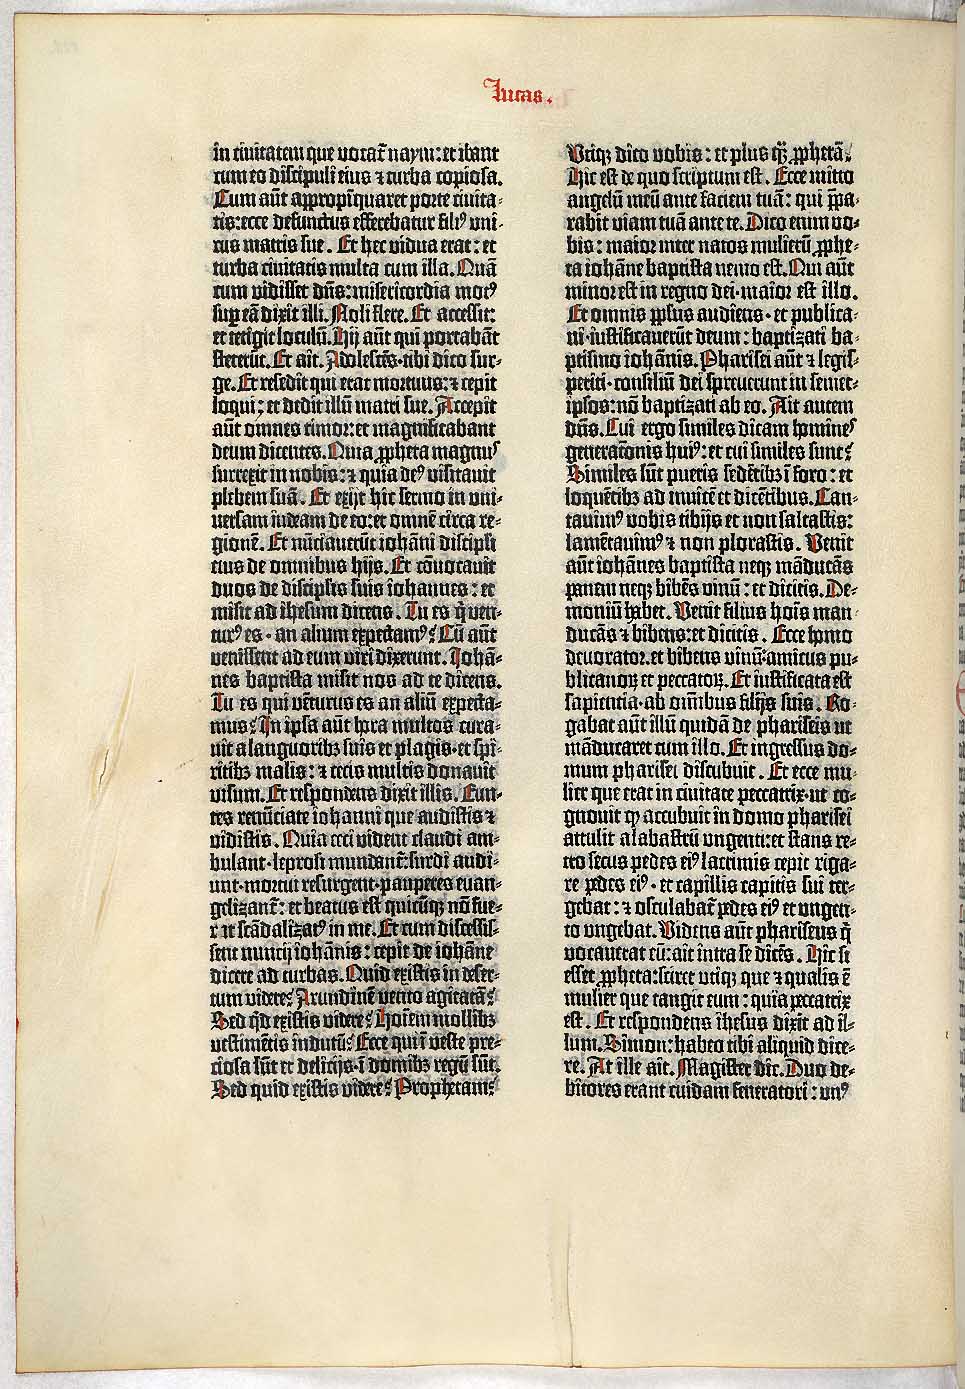 Lucas.
in civitatem que vocat̄ naym: et ibant
cum eo discipuli eius ⁊ turba copiosa.
Cum aūt appropīquaret porte civita⸗
tis: ecce defunctus efferebatur filiꝰ vni⸗
cus matris sue. Et hec vidua erat: et
turba civitatis multa cum illa. Quā
cum vidisset dn̄s: misericordia motꝰ
suꝑ eā dixit illi. Noli flere. Et accessit:
et tetigit loculū. Hij aūt qui portabāt
steterūt. Et ait. Adolescēs· tibi dico sur⸗
ge. Et resedit qui erat mortuus: ⁊ cepit
loqui; et dedit illū matri sue. Accepit
aūt omnes timor: et magnificabant
deum dicentes. Quia ꝓpheta magnus
surrexit in nobis: ⁊ quia deꝰ visitavit
plebem suā. Et exijt hic sermo in vni⸗
versam iudeam de eo: et omnē circa re⸗
gionē. Et nūciaverūt iohāni discipli
eius de omnibus hijs. Et cōvocavit
duos de disciplis suis iohannes: et
misit ad ihesum dicens. Tu es q̄ ven⸗
turꝰ es · an alium expectamꝰ? Cū aūt
venissent ad eum viri dixerunt. Johā⸗
nes baptista misit nos ad te dicens.
Tu es qui vēturus es an aliū expecta⸗
mus? In ipsa aūt hora multos cura⸗
vit a languoribꝫ suis et plagis· et spi⸗
ritibꝫ malis: ⁊ cecis multis donavit
visum. Et respondens dixit illis. Eun⸗
tes renūciate iohanni que audistis ⁊
vidistis. Quia ceci vident claudi am⸗
bulant· leprosi mundant̄: surdi audi⸗
unt· mortui resurgent· pauperes evan⸗
gelizant̄: et beatus est quicūqꝫ nō fue⸗
rit scādalizatꝰ in me. Et cum discessis⸗
sent nuncij iohānis: cepit de iohāne
dicere ad turbas. Quid existis in deser⸗
tum videre? Arundinē vento agitatā?
Sed qd existis videre? Hoīem mollibꝫ
vestimētis indutū? Ecce qui ī veste pre⸗
ciosa sūt et delicijs· ī domibꝫ regū sūt.
Sed quid existis videre? Prophetam?
Vtiqꝫ dico vobis: et plus qꝫ̄ ꝓphetā.
Hic est de quo scriptum est. Ecce mitto
angelū meū ante faciem tuā: qui p̄pa⸗
rabit viam tuā ante te. Dico enim vo⸗
bis: maior inter natos mulierū ꝓphe⸗
ta iohāne baptista nemo est. Qui aūt
minor est in regno dei· maior est illo.
Et omnis pplus audiens · et publica⸗
ni· iustificaverūt deum: baptizati ba⸗
ptismo iohānis. Pharisei aūt ⁊ legis⸗
periti· consiliū dei spreverunt in semet⸗
ipsos: nō baptizati ab eo. Ait autem
dn̄s. Cui ergo similes dicam homines
generatōnis huiꝰ: et cui similes sunt?
Similes sūt pueris sedētibꝫ ī foro: et
loquētibꝫ ad invicē et dicētibus. Can⸗
tavimꝰ vobis tibijs et non saltastis:
lamētavimꝰ ⁊ non plorastis. Venit
aūt iohānes baptista neqꝫ māducās
panem neqꝫ bibēs vinū: et dicitis. De⸗
moniū habet. Venit filius hoīs man⸗
ducās ⁊ bibens: et dicitis. Ecce homo
devorator. et bibens vinū: amicus pu⸗
blicanoꝝ et peccatoꝝ. Et iustificata est
sapientia· ab omībus filijs suis. Ro⸗
gabat aūt illū quidā de phariseis ut
māducaret cum illo. Et ingressus do⸗
mum pharisei discubuit. Et ecce mu⸗
lier que erat in civitate peccatrix· ut co⸗
gnovit ꝙ accubuit in domo pharisei
attulit alabastrū vngenti: et stans re⸗
tro secus pedes eiꝰ lacrimis cepit riga⸗
re pedes eiꝰ· et capillis capitis sui ter⸗
gebat: ⁊ osculabat̄ pedes eiꝰ et vngen⸗
to vngebat. Videns aūt phariseus q̄
vocaverat eū: ait intra se dicēs. Hic si
esset ꝓpheta: sciret vtiqꝫ que ⁊ qualis ē
mulier que tangit eum: quia peccatrix
est. Et respondens ihesus dixit ad il⸗
lum. Simon: habeo tibi aliquid dice⸗
re. At ille ait. Magister dic. Duo de⸗
bitores erant cuidam feneratori: vnꝰ